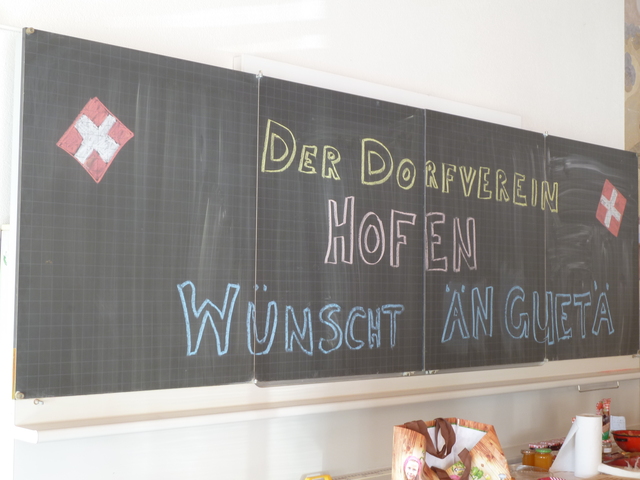 DER DORFVEREIN
HOFEN
WÜNSCHT ÄN GUETÄ